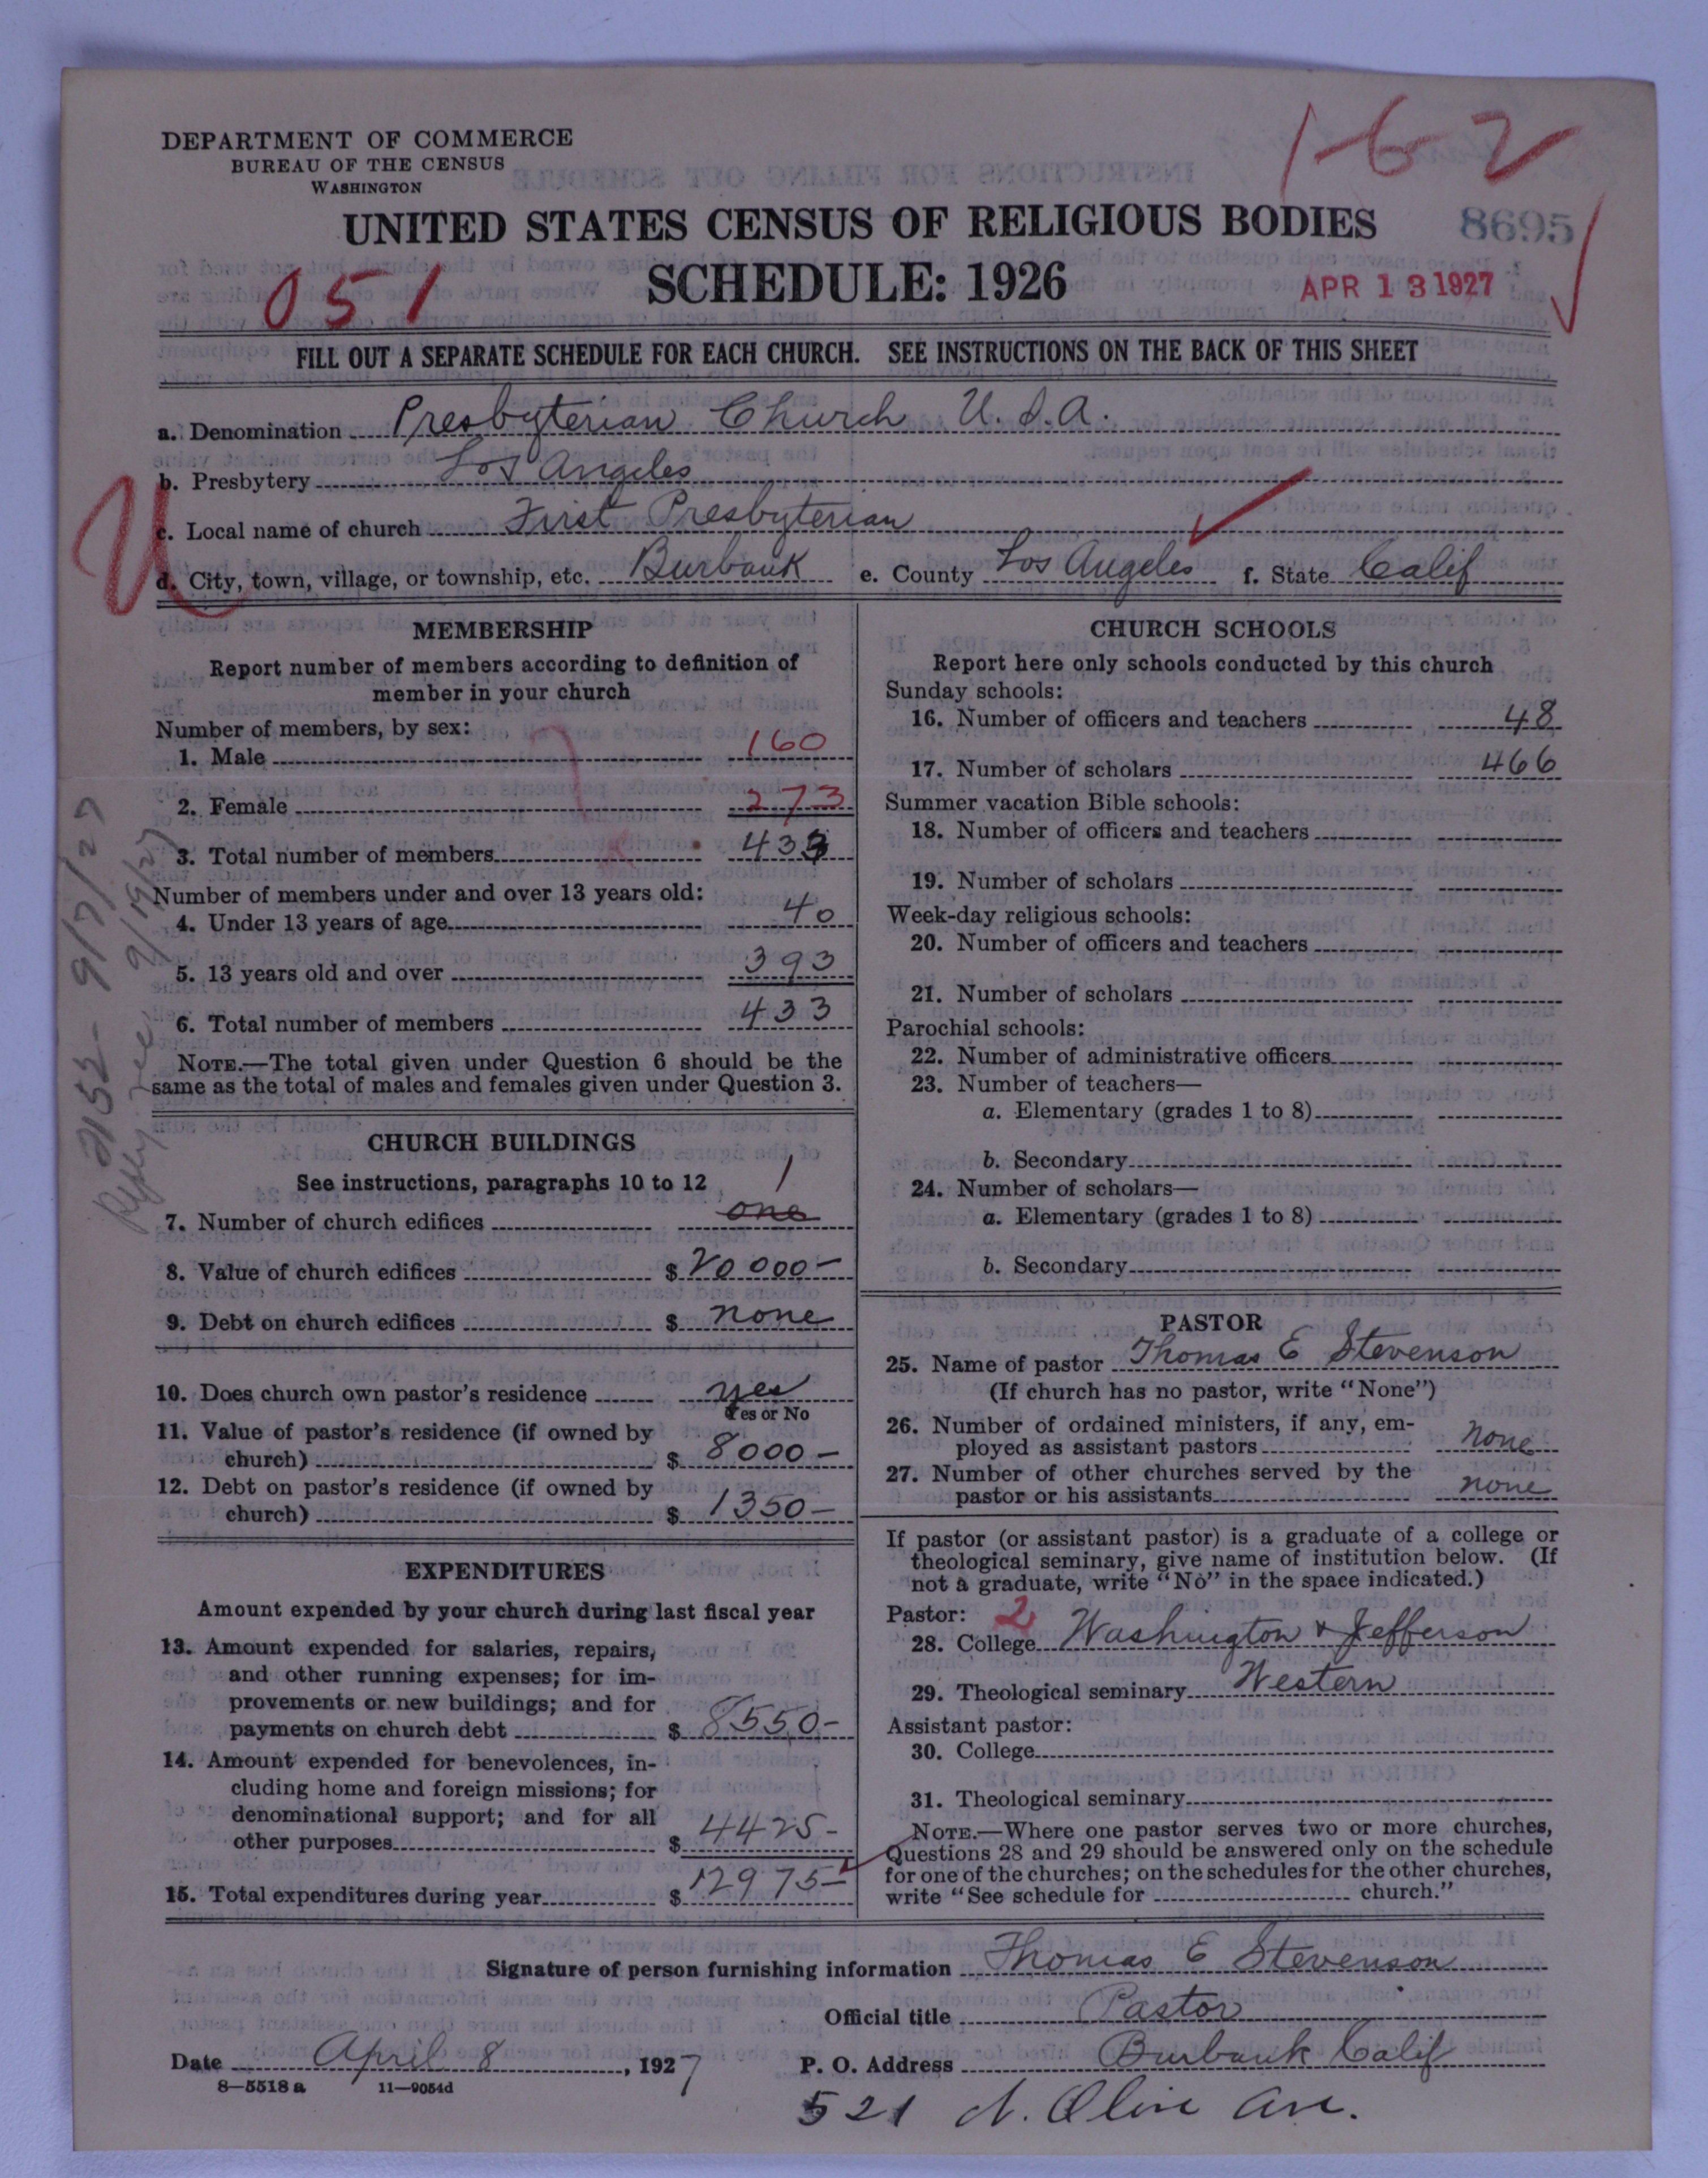 1-6-2
DEPARTMENT OF COMMERCE
BUREAU OF THE CENSUS
WASHINGTON
UNITED STATES CENSUS OF RELIGIOUS BODIES
8695
SCHEDULE: 1926
051
APR 13 1927
FILL OUT A SEPARATE SCHEDULE FOR EACH CHURCH. SEE INSTRUCTIONS ON THE BACK OF THIS SHEET
a. Denomination Presbyterian Church U.S.A.
b. Presbytery Los Angeles
c. Local name of church First Presbyterian
d. City, town, village, or township, etc. Burbank e. County Los Angeles f. State Calif
MEMBERSHIP
Report number of members according to definition of
member in your church
Number of members, by sex:
1. Male 160
2. Female 273
3. Total number of members 433
Number of members under and over 13 years old:
4. Under 13 years of age 40
5. 13 years old and over 393
6. Total number of members 433
NOTE.—The total given under Question 6 should be the
same as the total of males and females given under Question 3.
9/7/27
CHURCH BUILDINGS
See instructions, paragraphs 10 to 12
1
7. Number of church edifices one
8. Value of church edifices $ 20000-
9. Debt on church edifices $ none
10. Does church own pastor's residence yes
Yes or No
11. Value of pastor's residence (if owned by
church) $ 8000-
12. Debt on pastor's residence (if owned by
church) $ 1350-
EXPENDITURES
Amount expended by your church during last fiscal year
13. Amount expended for salaries, repairs,
and other running expenses; for im-
provements or new buildings; and for
payments on church debt $ 8550-
14. Amount expended for benevolences, in-
cluding home and foreign missions; for
denominational support; and for all
other purposes $ 4425-
15. Total expenditures during year $ 12975-
CHURCH SCHOOLS
Report here only schools conducted by this church
Sunday schools:
16. Number of officers and teachers 48
17. Number of scholars 466
Summer vacation Bible schools:
18. Number of officers and teachers
19. Number of scholars
Week-day religious schools:
20. Number of officers and teachers
21. Number of scholars
Parochial schools:
22. Number of administrative officers
23. Number of teachers—
a. Elementary (grades 1 to 8)
b. Secondary
24. Number of scholars—
a. Elementary (grades 1 to 8)
b. Secondary
PASTOR
25. Name of pastor Thomas E Stevenson
(If church has no pastor, write "None")
26. Number of ordained ministers, if any, em-
ployed as assistant pastors none
27. Number of other churches served by the
pastor or his assistants none
If pastor (or assistant pastor) is a graduate of a college or
theological seminary, give name of institution below. (If
not a graduate, write "No" in the space indicated.)
Pastor: 2
28. College Washington & Jefferson
29. Theological seminary Western
Assistant pastor:
30. College
31. Theological seminary
NOTE.—Where one pastor serves two or more churches,
Questions 28 and 29 should be answered only on the schedule
for one of the churches; on the schedules for the other churches,
write "See schedule for church."
Signature of person furnishing information Thomas E Stevenson
Official title Pastor
Date April 8, 1927 P. O. Address Burbank Calif
8—5518 a 11—9054d
521 N. Olive Ave.